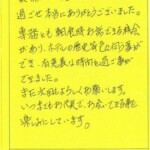 過ごせ本当にありがとうございました。
専務とも朝食時お話できる機会
があり、ホテルの歴史等色々伺う事が
でき、有意義な時間を過ご事が
できました。
また次回よろしくお願いします。
いつまでもお元気で、お会いできる事を
楽しみにしています。